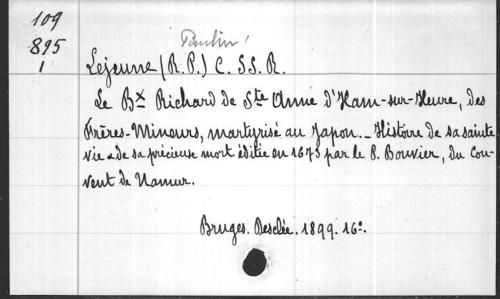 109
895
1
Paulin
Lejeune (R.P.) C. SS. R.
Le Bx Richard de Ste Anne d'Ham-sur-Heure, des
Frères-Mineurs, martyrisé au Japon. - Histoire de sa sainte
vie & de sa précieuse mort éditée en 1673 par le P. Bouvier, du Cou-
vent de Namur.
Bruges. Desclée. 1899. 16°.